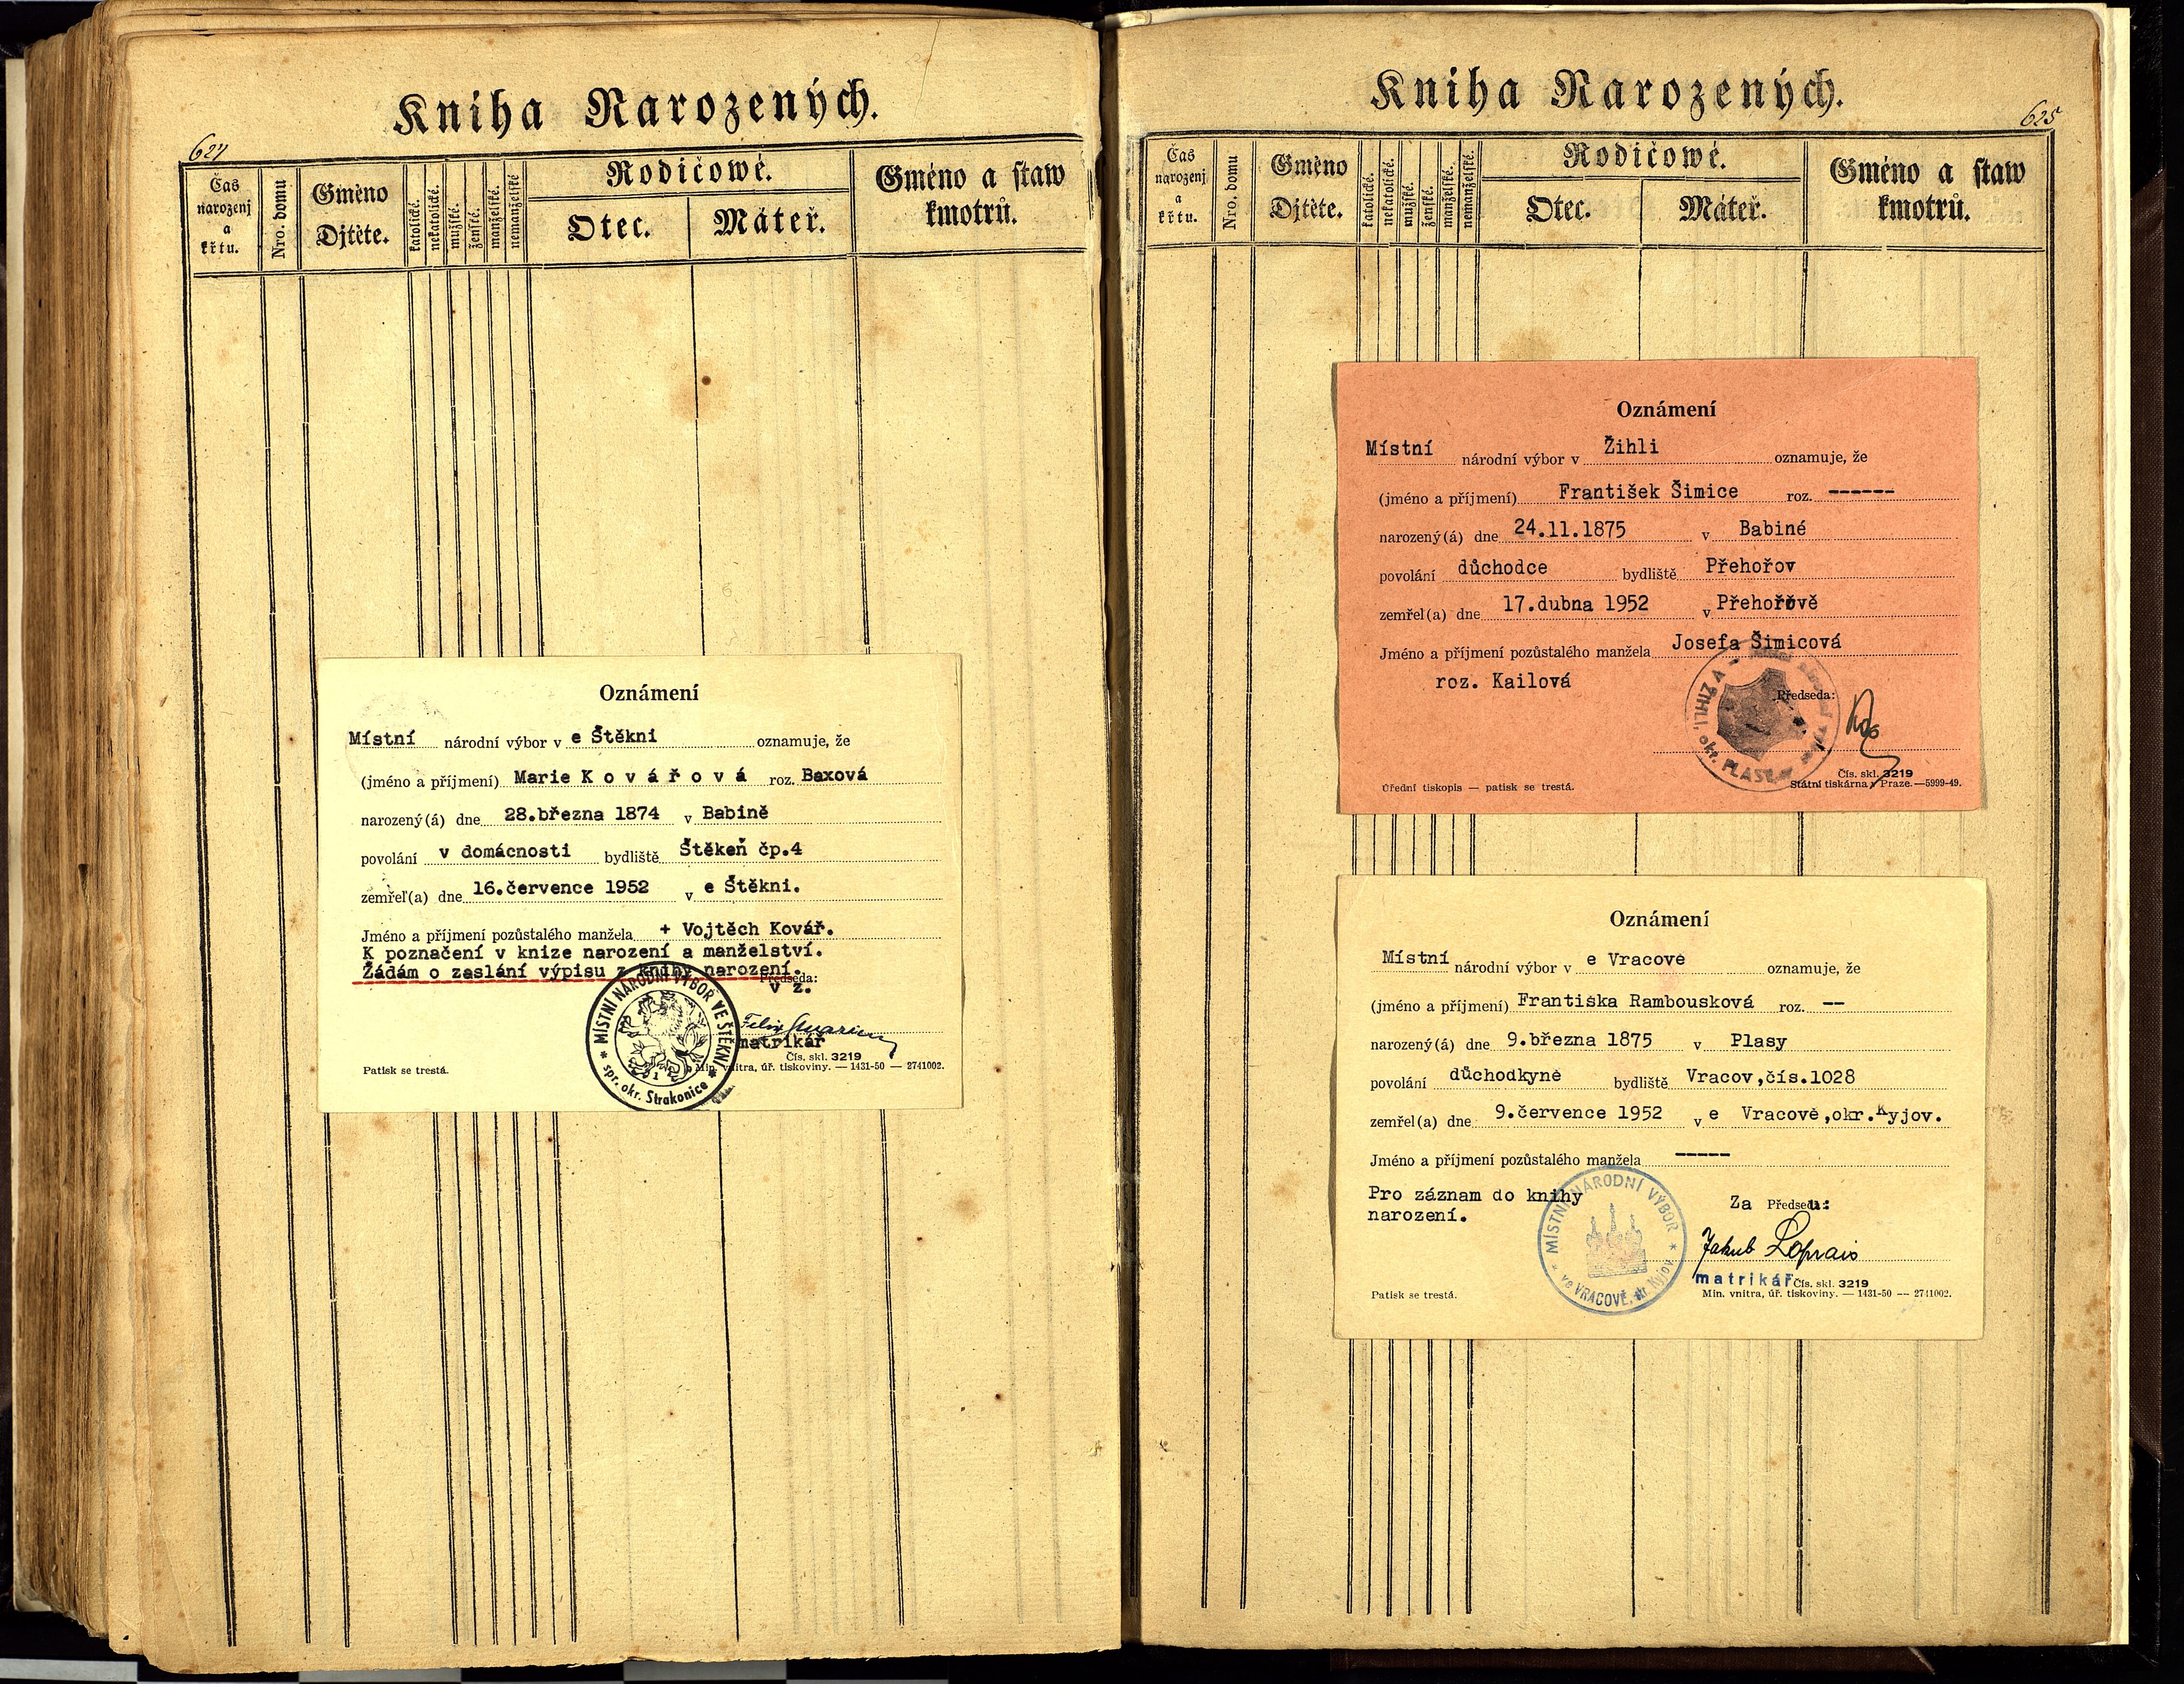 Kniha Narozených.
624
Čas narozenj a křtu.
Nro. domu
Gméno Djtěte.
katolické.
nekatolické.
mužské.
ženské.
manželské.
nemanželské
Rodičowé.
Otec.
Máteř.
Gméno a staw kmotrů.
Oznámení
Místní národní výbor v e Štěkni oznamuje, že
(jméno a příjmení) Marie Kovářová roz. Baxová
narozený(á) dne 28.března 1874 v Babině
povolání v domácnosti bydliště Štěkeň čp.4
zemřel(a) dne 16.července 1952 v e Štěkni.
Jméno a příjmení pozůstalého manžela + Vojtěch Kovář.
K poznačení v knize narození a manželství.
Žádám o zaslání výpisu z knihy narození.
Předseda:
v z.
matrikář
MÍSTNÍ NÁRODNÍ VÝBOR VE ŠTĚKNI
spr. okr. Strakonice
Čís. skl. 3219
Patisk se trestá.
Min. vnitra, úř. tiskoviny. — 1431-50 — 2741002.
Kniha Narozených.
625
Čas narozenj a křtu.
Nro. domu
Gméno Djtěte.
katolické.
nekatolické.
mužské.
ženské.
manželské.
nemanželské.
Rodičowé.
Otec.
Máteř.
Gméno a staw kmotrů.
Oznámení
Místní národní výbor v Žihli oznamuje, že
(jméno a příjmení) František Šimice roz. ------
narozený(á) dne 24.11.1875 v Babiné
povolání důchodce bydliště Přehořov
zemřel(a) dne 17.dubna 1952 v Přehořově
Jméno a příjmení pozůstalého manžela Josefa Šimicová
roz. Kailová
Předseda:
V ŽIHLI, okr. PLASY
Čís. skl. 3219
Úřední tiskopis — patisk se trestá.
Státní tiskárna v Praze.—5999-49.
Oznámení
Místní národní výbor v e Vracově oznamuje, že
(jméno a příjmení) Františka Rambousková roz. --
narozený(á) dne 9.března 1875 v Plasy
povolání důchodkyně bydliště Vracov,čís.1028
zemřel(a) dne 9.července 1952 v e Vracově,okr.Kyjov.
Jméno a příjmení pozůstalého manžela -----
Pro záznam do knihy
narození.
Za Předsedu:
MÍSTNÍ NÁRODNÍ VÝBOR
ve VRACOVĚ, okr. Kyjov
Jakub Loprais
matrikář
Čís. skl. 3219
Patisk se trestá.
Min. vnitra, úř. tiskoviny. — 1431-50 — 2741002.